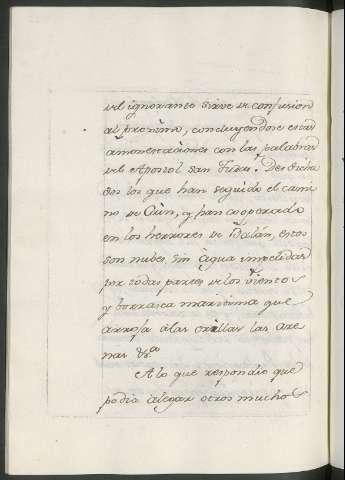 del ignorante sirve de confusion
al proximo, concluyendose estas
amonestaciones con las palabras
del Apostol san Judas. Desdicha
dos los que han seguido el cami
no de Cain, y han cooperado
en los herrores de Balán, estos
son nubes sin àgua impelidas
por todas partes de los viento
y borrasca maritima que
arroja à las orillas las are
nas &.a
A lo que respondio que
podia alegar otros mucho